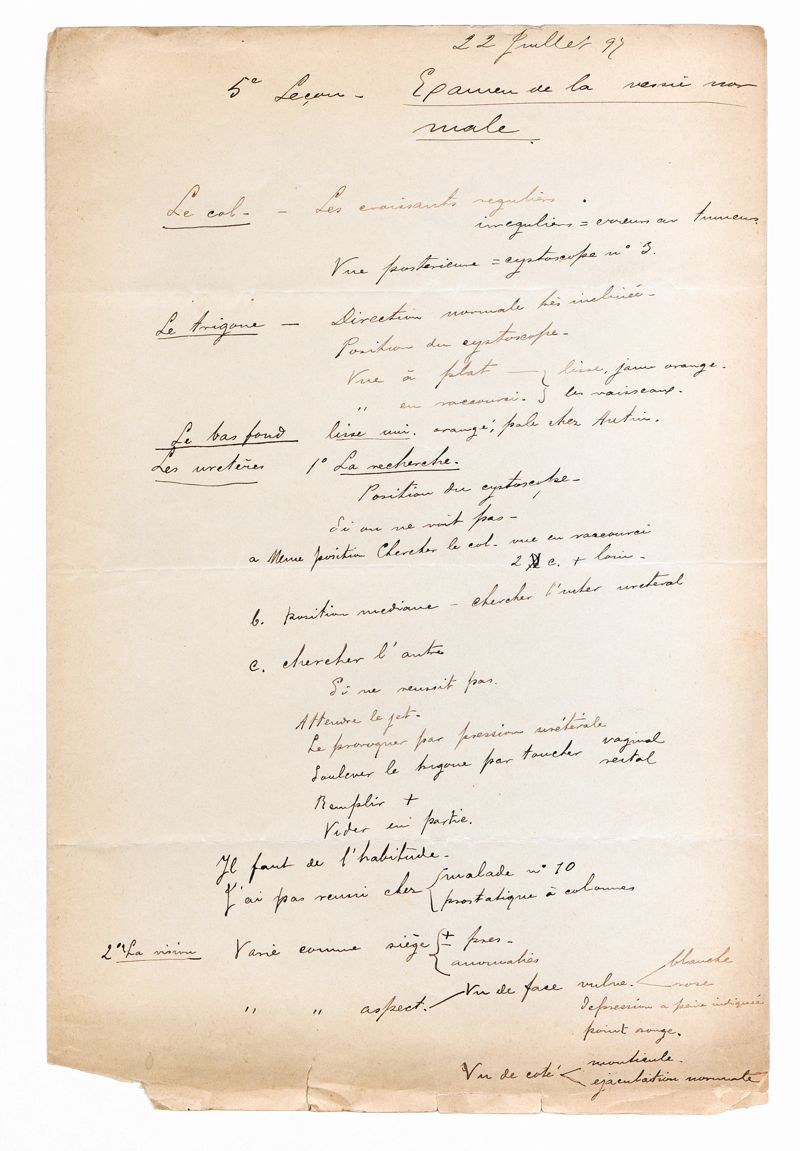 22 Juillet 97
5e Leçon - Examen de la vessie nor
male.
Le col - - Les croissants reguliers
irreguliers = erreurs ou tumeurs.
Vue posterieure = cystoscope n° 3.
Le trigone - Direction normale très inclinée -
Position du cystoscope -
Vue à plat - { lisse, jaune orange.
" en raccourci. } les vaisseaux.
Le bas fond lisse uni. orangé, pale chez
Les uretères 1° La recherche.
Position du cystoscope -
Si on ne voit pas -
a Meme position Chercher le col - vue en raccourci
2 c. + loin -
b. position mediane - chercher l'inter ureteral
c. chercher l'autre
Si ne reussit pas.
Attendre le jet -
Le provoquer par pression urétérale
Soulever le trigone par toucher vaginal
rectal
Remplir +
Vider en partie.
Il faut de l'habitude -
J'ai pas reussi chez { malade n° 10
prostatique à colonnes
2° La vision Varie comme siège { ± pres -
anomalies
" " aspect. Vu de face vulve. < blanche
rose
depression a peine indiquée
point rouge.
Vu de coté < monticule.
ejaculation normale